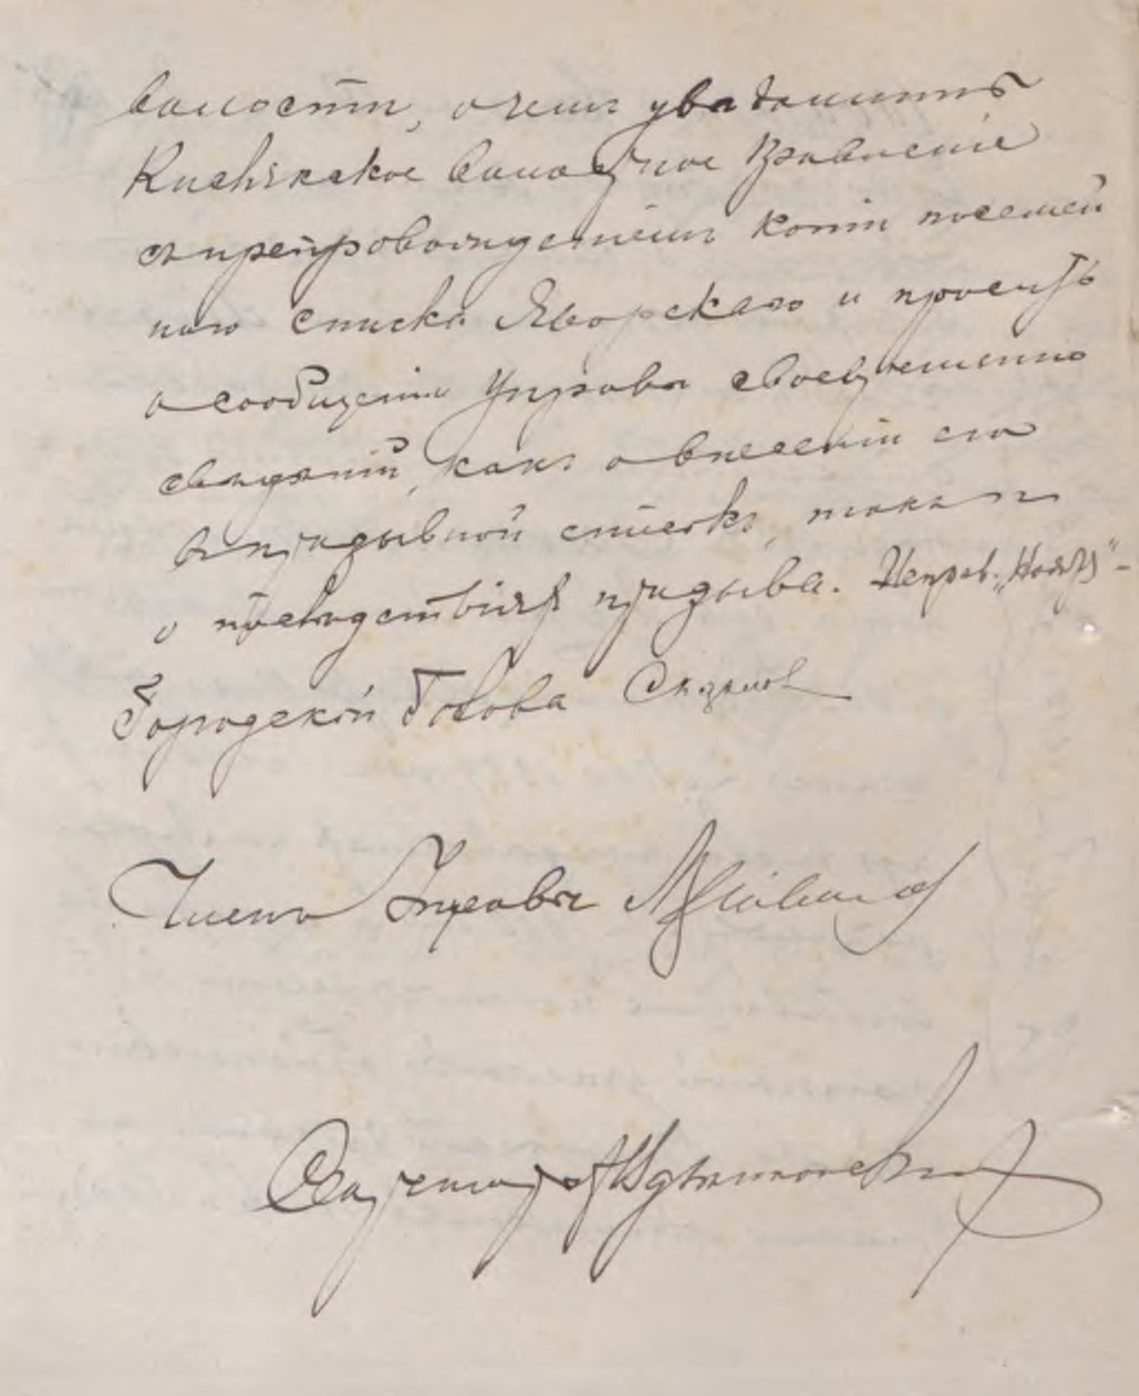 волости, о чемъ увѣдомить
волостное Правленіе
съ препровожденіемъ копіи посемей
наго списка Яворскаго и проситъ
о сообщеніи Управѣ своевременно
свѣдѣній, какъ о внесеніи его
въ призывной списокъ, такъ и
о послѣдствіяхъ призыва. Исправ.
Городской Голова
Члены Управы
Секретарь